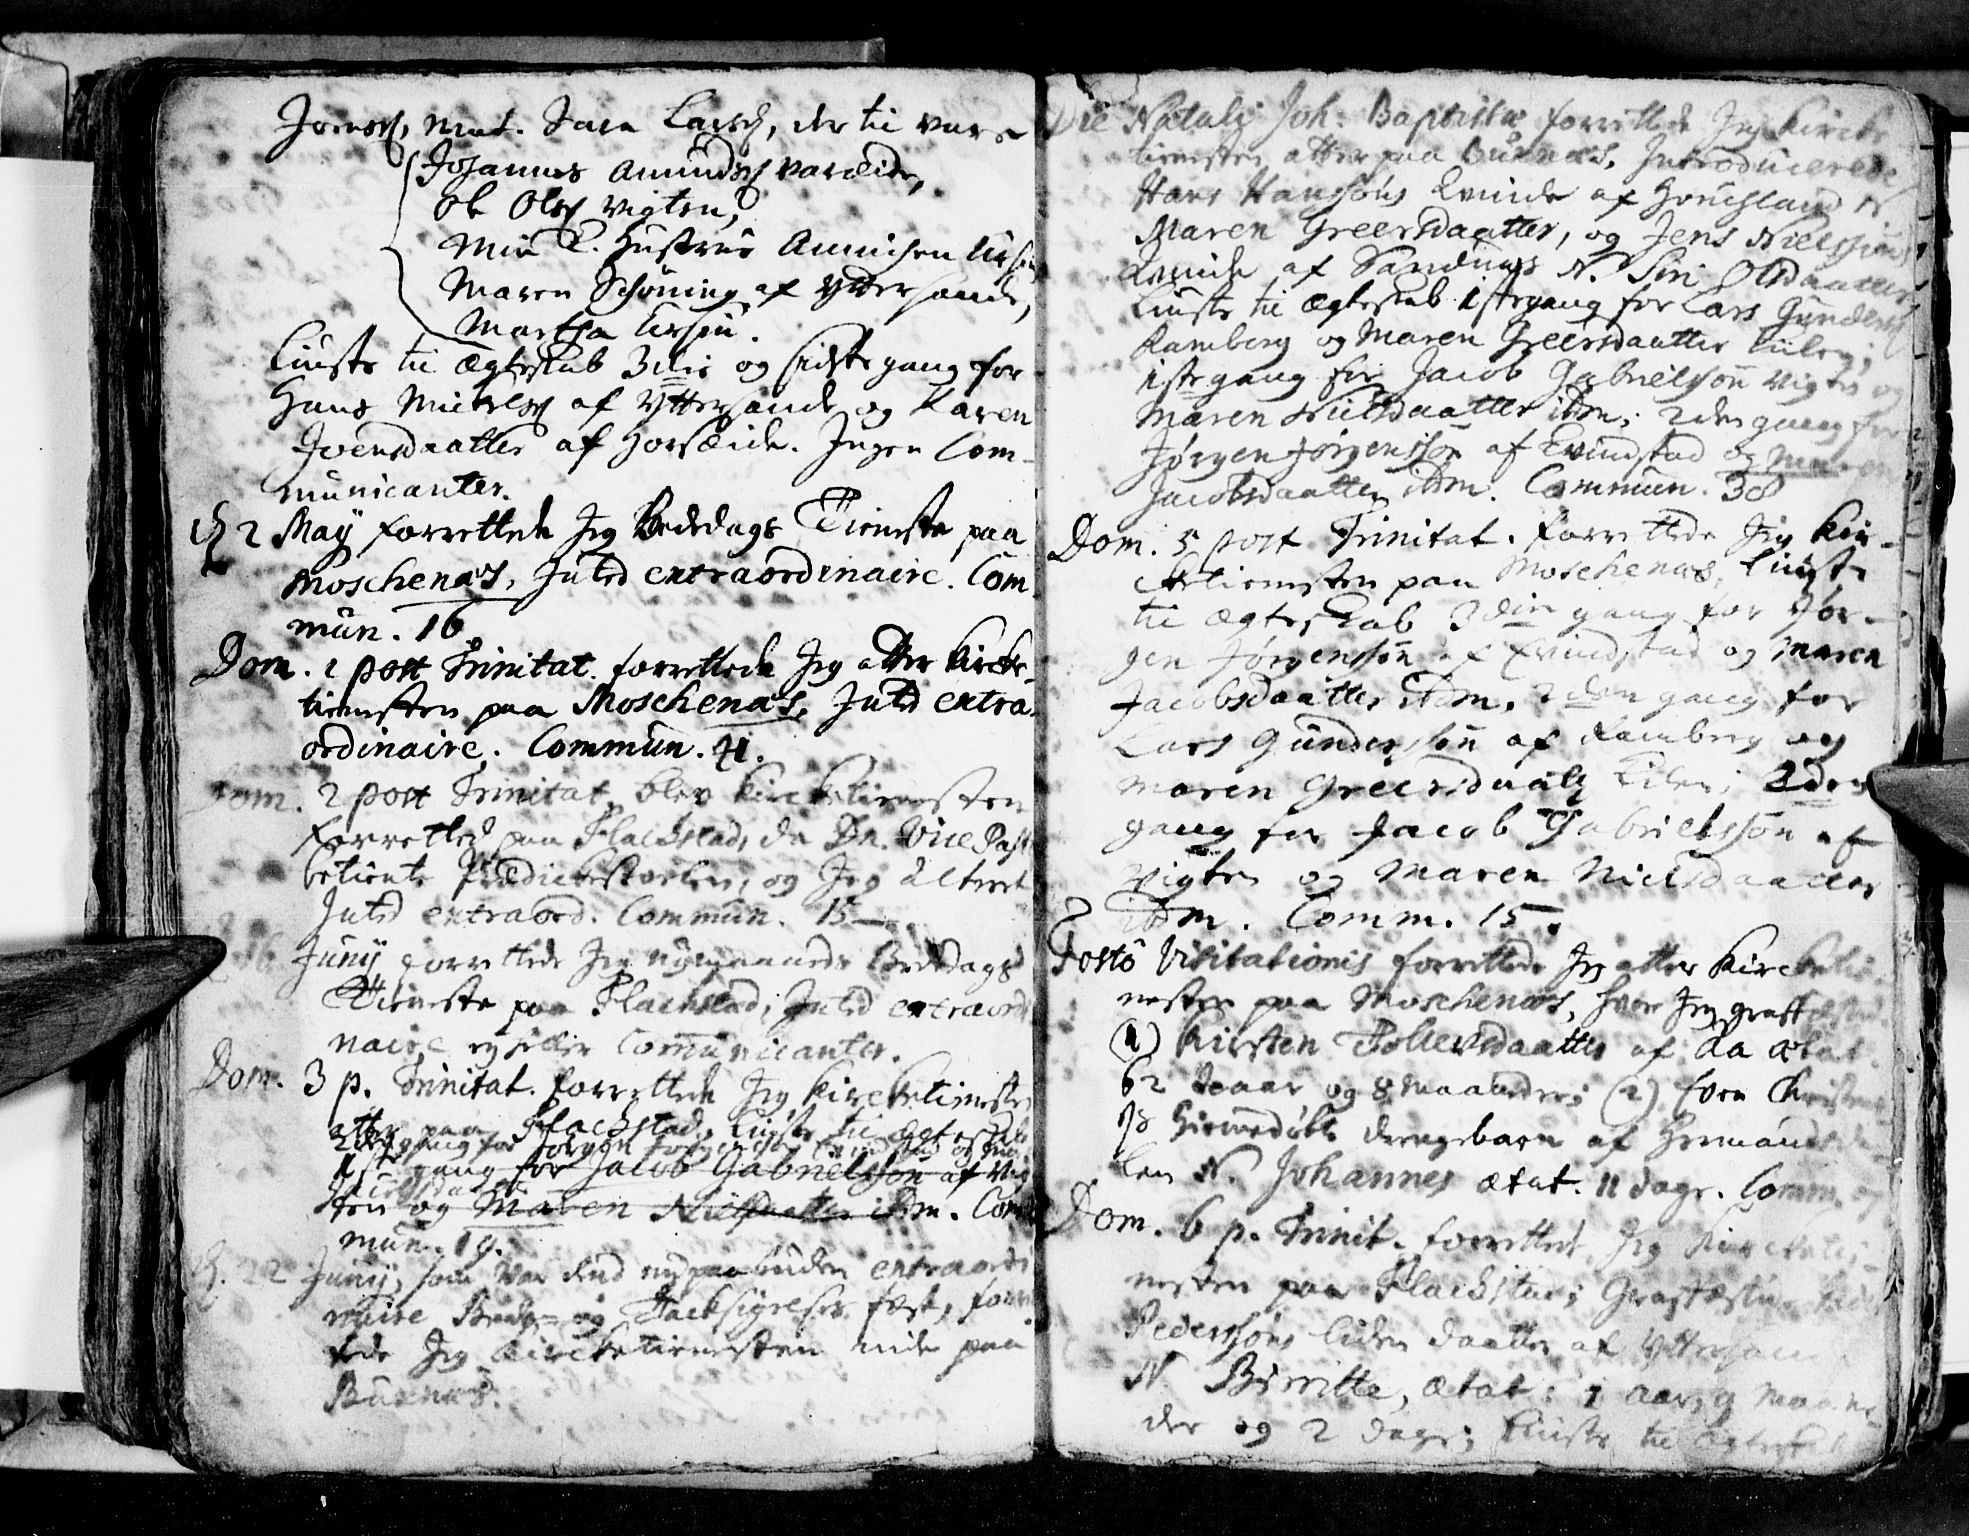 Joensøn, Nat. Sara Larsd, der til vare
Johannes Amundsøn Vareide,
Ole Olsøn Vigten,
Min K. Hustrue Annichen Ursin
Maren Schøning af Yttersande,
Martha Ursin.
Liuste til Ægteskab 3die og sidste gang for
Hans Michelsøn af Yttersande og Karen
Joensdaatter af Horseide. Ingen Com-
municanter.
2 May forrettede Jeg Bededags Tieneste paa
Moschenæs, Intrd extraordinaire. Com
mun. 16.
Dom. 1 post Trinitat. forrettede Jeg atter Kircke-
tienesten paa Moschenæs, Intrd extra-
ordinaire. Commun. 41.
Dom. 2 post Trinitat. blev Kircketienesten
forretted paa Flackstad, da Dn. Vice Past
betiente Prædickestoelen, og Jeg Alteret
Intrd extraord. Commun. 15
16 Junij forrettede Jeg nymaaneds Bededags
Tieneste paa Flackstad, Intrd extraordi
naire, ey heller Communicanter.
Dom. 3 p. Trinitat. forrettede Jeg Kircketieneste
atter paa Flackstad, Liuste til Ægteskab
2den gang for Jørgen Jørgensøn Evindstad og Ma-
1ste gang for Jacob Gabrielssøn af Vig
ten og Maren Nielsdaatter ibm. Com
mun. 19.
22 Junij, som var dend nypaabuden extraordi
naire Bede- og Tacksigelses fæst, forret
tede Jeg Kircketienesten inde paa
Buxnæs.
Die Natali Joh: Baptistæ forrettede Jeg Kircke
tienesten atter paa Buxnæs, Introducerede
Hans Hanssøns Qvinde af
Maren Greersdaatter, og Jens Nielssøns
Qvinde af Sandnæs N. Siri Olsdaatter
Liuste til Ægteskab 1ste gang for Lars Gundersøn
Ramberg og Maren Greersdaatter
1ste gang for Jacob Gabrielssøn Vigten og
Maren Nielsdaatter ibm; 2den gang for
Jørgen Jørgenssøn af Evindstad og Maren
Jacobsdaatter ibm. Commun. 38
Dom. 5 post Trinitat. forrettede Jeg Kir-
cketienesten paa Moschenæs, Liuste
til Ægteskab 3die gang for Jør-
gen Jørgenssøn af Evindstad og Maren
Jacobsdaatter ibm, 2den gang for
Lars Gunderssøn af Ramberg og
Maren Greersdaatter 2den
gang for Jacob Gabrielssøn af
Vigten og Maren Nielsdaatter
ibm. Comm. 15.
Festo Visitationis forrettede Jeg atter Kircketie-
nesten paa Moschenæs, hvor Jeg graffæstede
(1) Kirsten Tollevsdaatter af Aa ætat
62 Aaar og 8 Maaneder; (2)
Hiemedøbte drengebarn af
N. Johannes ætat. 11 dage. Comm.
Dom. 6 p. Trinit. forrettede Jeg Kircketie-
nesten paa Flackstad; Grafæstede
Pederssøns liden daatter af Yttersand
N. Birritte, ætat: 1 aar, 9 Maane
der og 2 dage; Liuste til Ægteskab